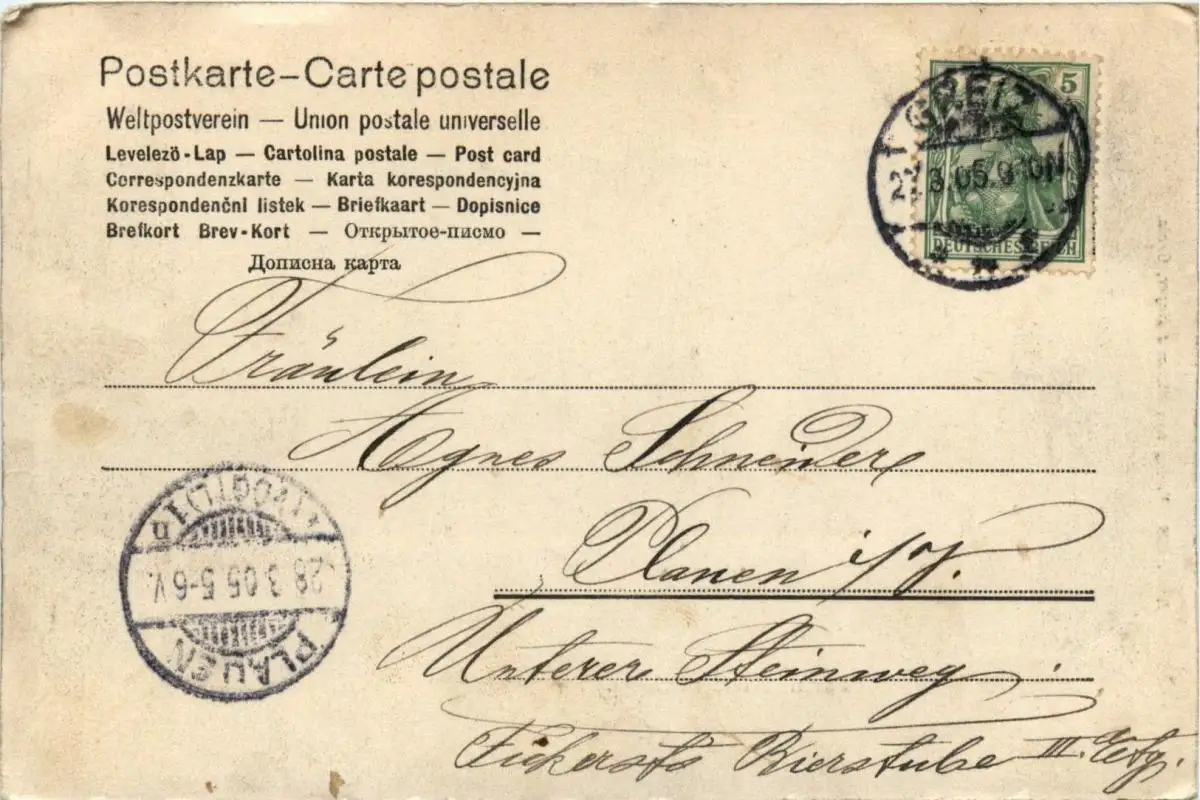 Postkarte – Carte postale
Weltpostverein — Union postale universelle
Levelező-Lap — Cartolina postale — Post card
Correspondenzkarte — Karta korespondencyjna
Korespondenční listek — Briefkaart — Dopisnice
Brefkort Brev-Kort — Открытое-письмо —
Дописна карта
5
GREIZ
3.05
DEUTSCHES REICH
Fräulein
Agnes Schneider
Plauen i/V.
Unterer Steinweg
PLAUEN
(VOGTL) 1
28 3 05 5-6 V.
Bierstube III. Etg.